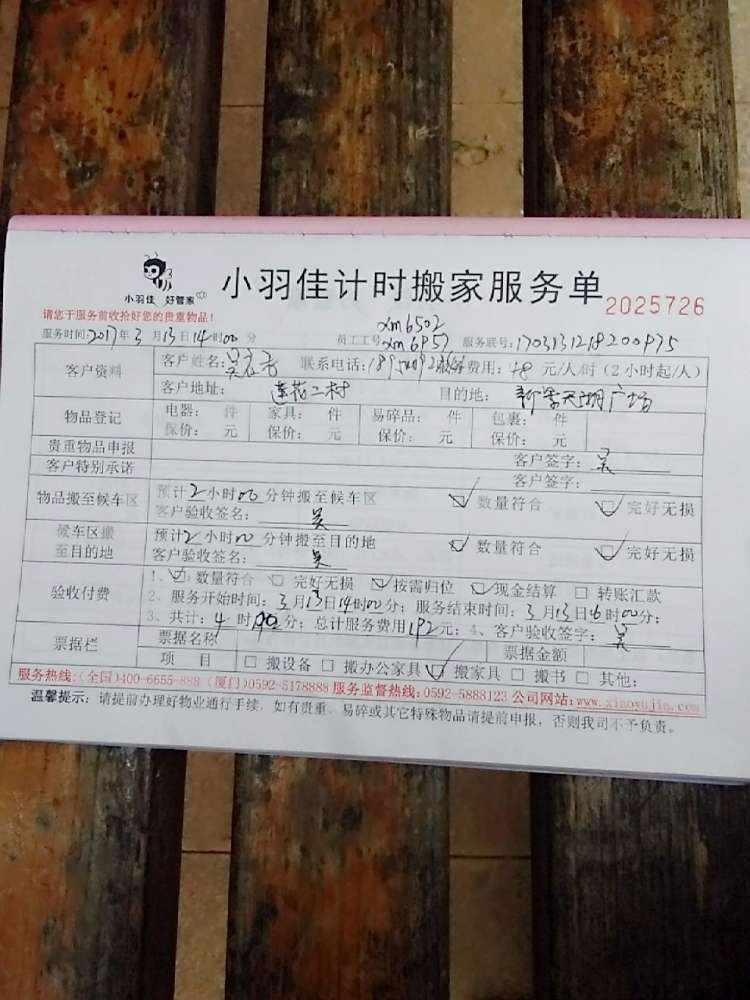 小羽佳 好管家
小羽佳计时搬家服务单 2025726
请您于服务前收拾好您的贵重物品!
xm6502
服务时间:2017年3月13日14时00分 员工工号 xm6957 服务联号:1703131218200975
客户资料 客户姓名:吴 联系电话: 服务费用:48元/人/时(2小时起/人)
客户地址: 莲花二村 目的地: 天湖广场
物品登记 电器: 件 家具: 件 易碎品: 件 包裹: 件
保价: 元 保价: 元 保价: 元 保价: 元
贵重物品申报 客户签字: 吴
客户特别承诺 客户签字:
物品搬至候车区 预计2小时00分钟搬至候车区 ☑数量符合 ☑完好无损
客户验收签名: 吴
候车区搬至目的地 预计2小时00分钟搬至目的地 ☑数量符合 ☑完好无损
客户验收签名: 吴
验收付费 1、☑数量符合 □完好无损 ☑按需归位 ☑现金结算 □转账汇款
2、服务开始时间:3月13日14时00分; 服务结束时间:3月13日16时00分;
3、共计:4时00分; 总计服务费用192元; 4、客户验收签字: 吴
票据栏 票据名称 票据金额
项 目 □搬设备 □搬办公家具 ☑搬家具 □搬书 □其他:
服务热线:(全国)400-6655-888 (厦门)0592-5178888 服务监督热线:0592-5888123 公司网站:www.xiaoyujia.com
温馨提示: 请提前办理好物业通行手续,如有贵重、易碎或其它特殊物品请提前申报,否则我司不予负责。